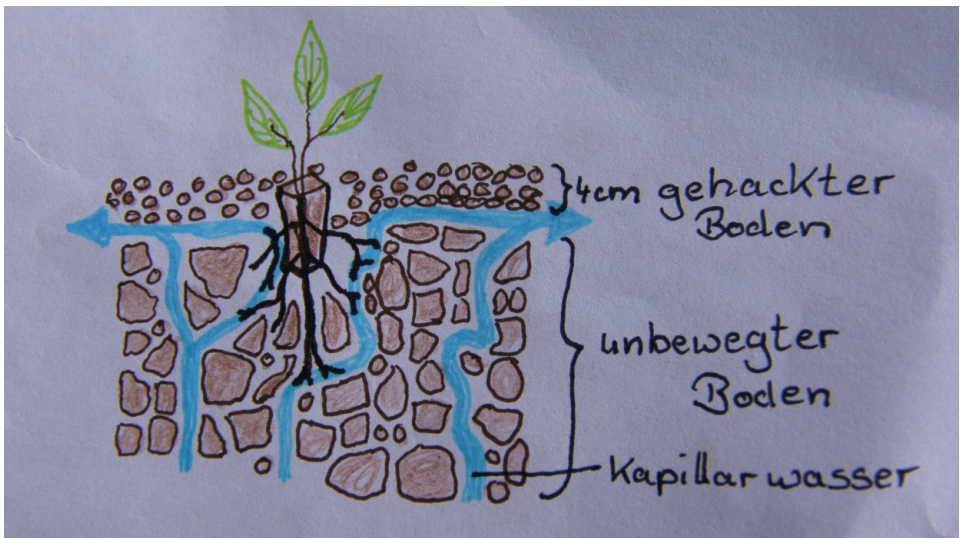 4cm gehackter
Boden
unbewegter
Boden
Kapillarwasser